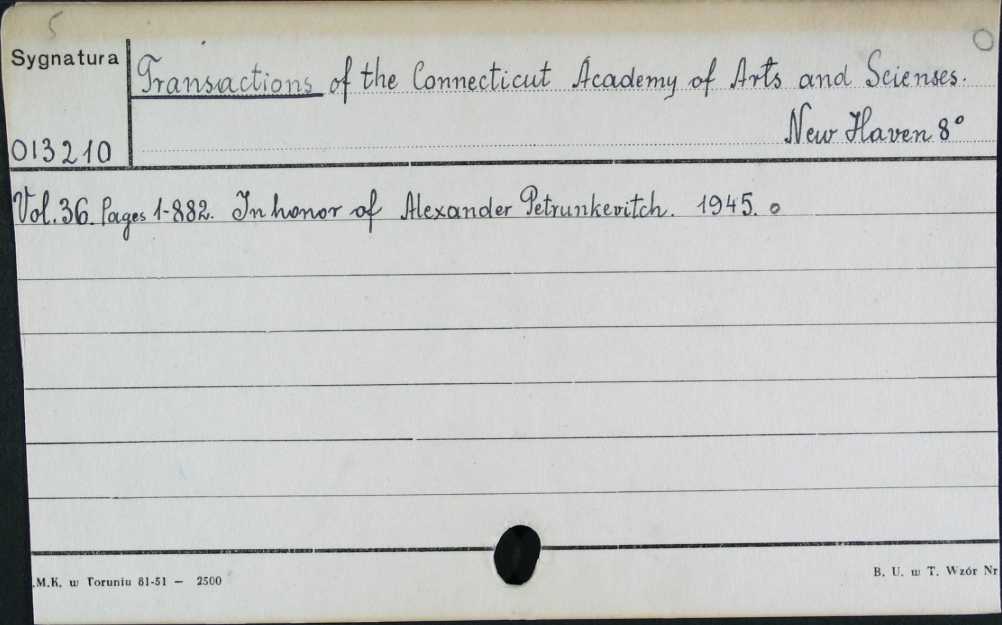 5
O
Sygnatura
Transactions of the Connecticut Academy of Arts and Scienses.
New Haven 8°
013210
Vol. 36. Pages 1-882. In honor of Alexander Petrunkevitch. 1945. o
.M.K. w Toruniu 81-51 — 2500
B. U. w T. Wzór Nr